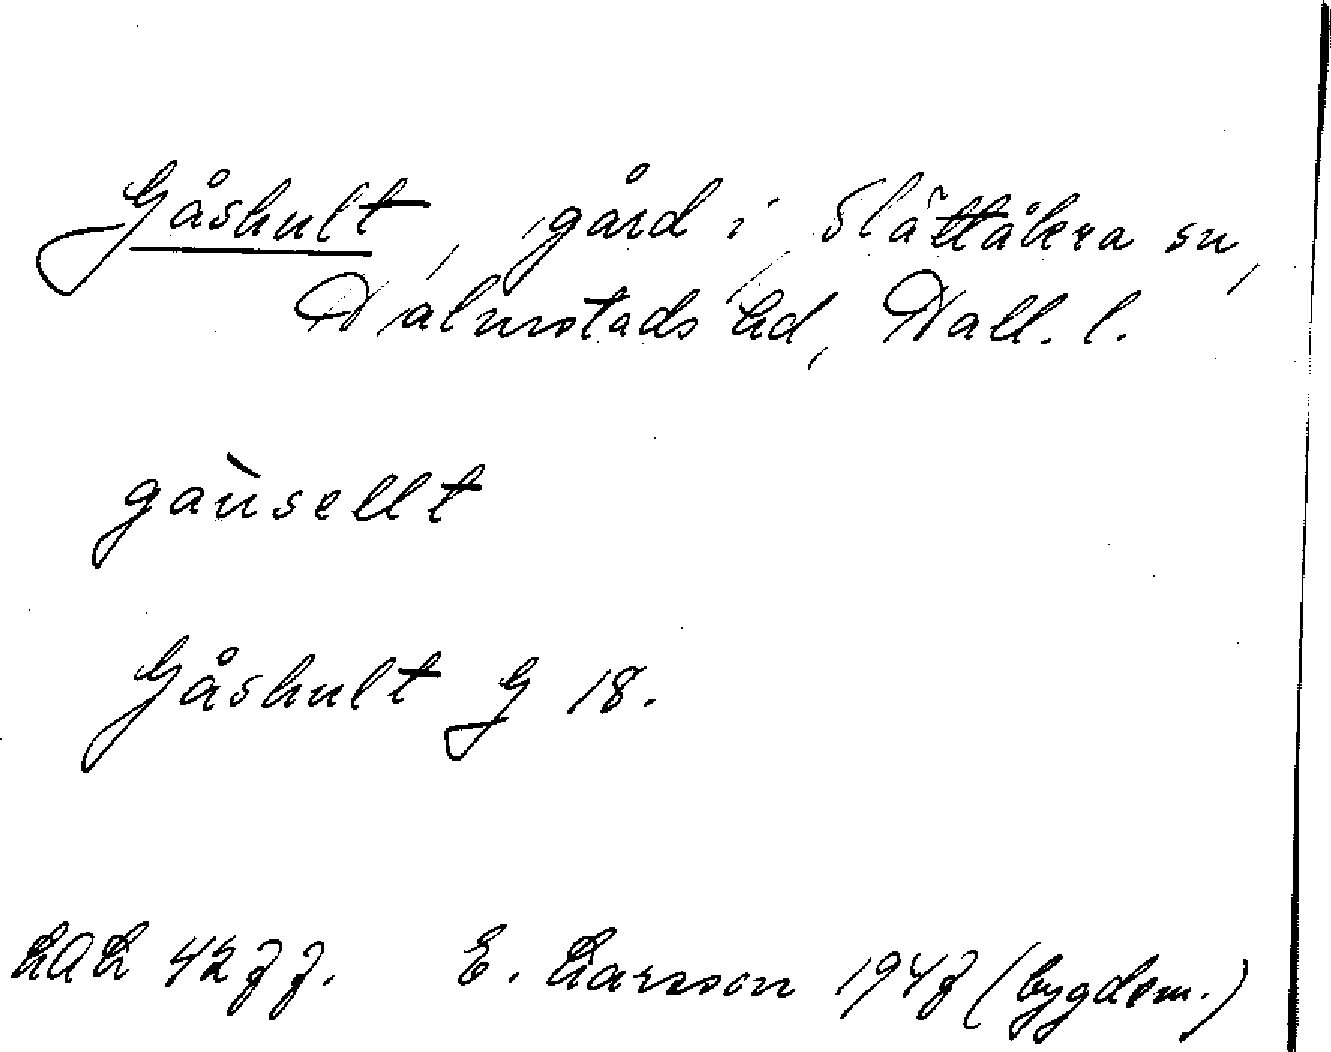 Gåshult, gård i Slättåkra sn,
Halmstads hd, Hall. l.
gaùsellt
Gåshult G 18.
LAL 4277. E. Larsson 1947 (bygdem.)